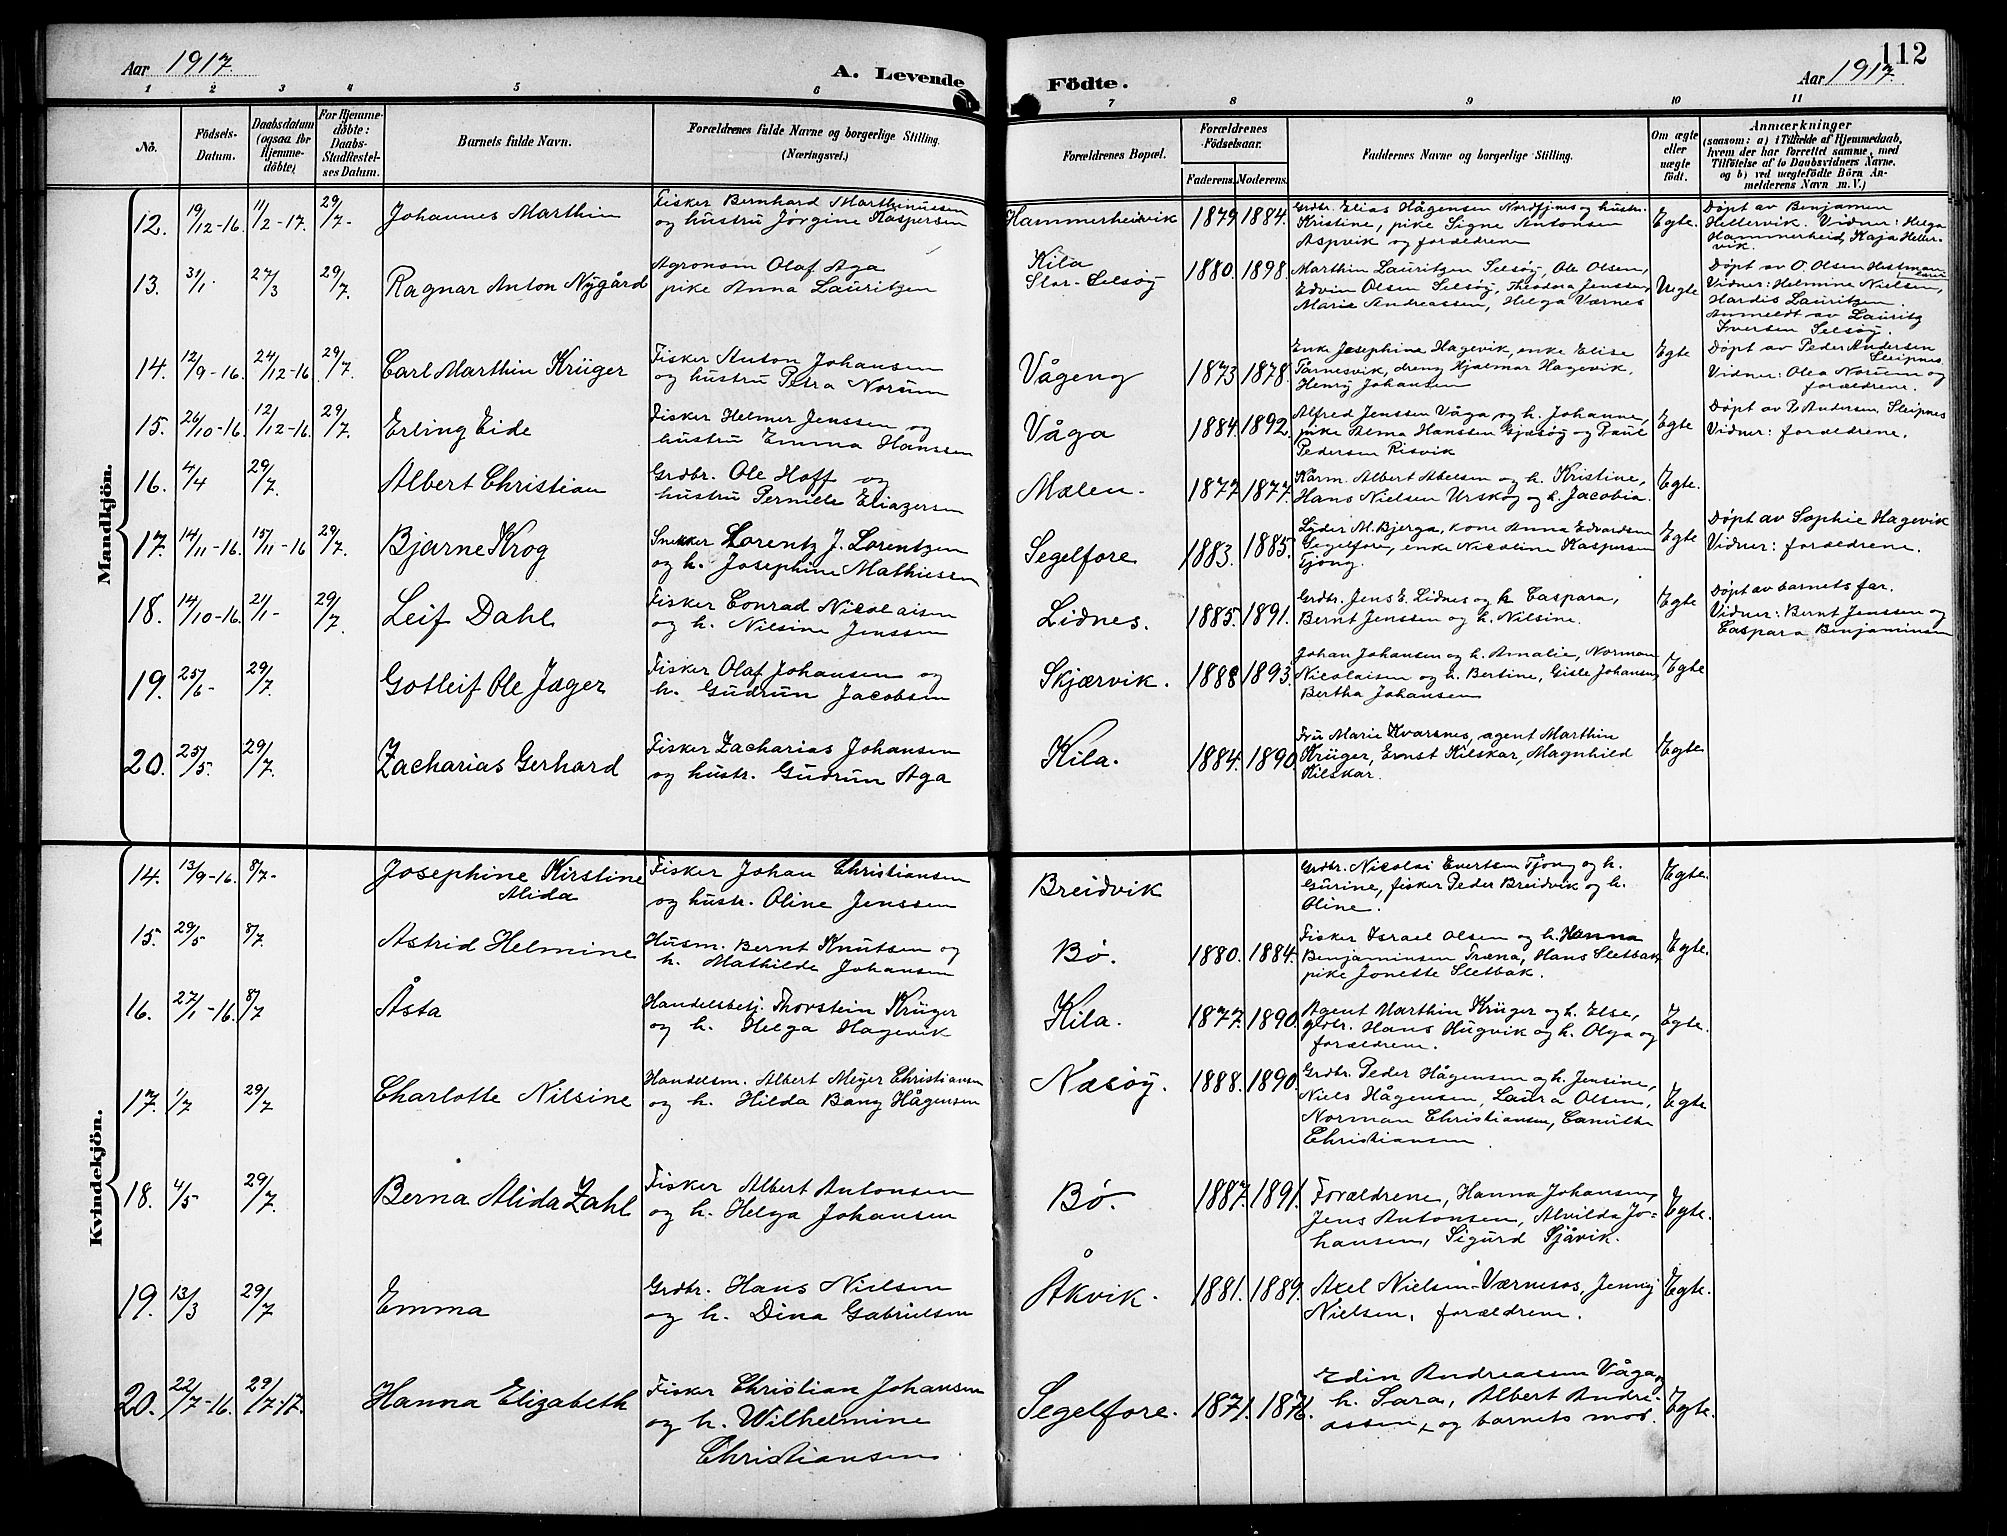 Aar 1917.
A. Levende Födte.
Aar 1917.
112
1 2 3 4 5 6 7 8 9 10 11
Nö.
Födsels-Datum.
Daabsdatum (ogsaa for Hjemmedöbte)
For Hjemmedöbte: Daabs-Stadfæstelses Datum.
Barnets fulde Navn.
Forældrenes fulde Navne og borgerlige Stilling. (Næringsvei.)
Forældrenes Bopæl.
Forældrenes Födselsaar.
Faderens. Moderens.
Faddernes Navne og borgerlige Stilling.
Om ægte eller uægte födt.
Anmærkninger (saasom: a) i Tilfælde af Hjemmedaab, hvem der har forrettet samme, med Tilföielse af to Daabsvidners Navne, og b) ved uægtefödte Börn Anmelderens Navn m. V.)
Mandkjön.
12. 19/12-16. 11/2-17. 29/7-
Johannes Marthin
Fisker Bernhard Marthinussen
og hustru Jørgine Kaspersen
Hammerheidvik 1879 1884.
Grdbr. Elias Hågensen Nordfjnes og hustr.
Kristine, pike Signe Antonsen
Aspvik og forældrene
Egte.
Døpt av Benjamin
Hellervik. Vidner: Helga
Hammerheid, Kaja Hellervik.
13. 31/1. 27/3 29/7.
Ragnar Anton Nygård
Agronom Olaf Aga
pike Anna Lauritzen
Kila
Stor-Selsøy
1880. 1898.
Marthin Lauritzen Selsøy, Ole Olsen,
Edvin Olsen Selsøy, Theodora Jenssen,
Marie Andreassen, Helga Værnes
Uegte
Døpt av O. Olsen
Vidner: Helmine Nielsen,
Hardis Lauritzen.
Anmeldt av Lauritz
Iversen Selsøy.
14. 12/9-16. 24/12-16 29/7.
Carl Marthin Krüger
Fisker Anton Johansen
og hustru Petra Norum
Vågeng 1873 1878.
Enke Josephine Hagevik, enke Elise
Tårnesvik, dreng Hjalmar Hagevik,
Henry Johansen
Egte
Døpt av Peder Andersen
Sleipnes
Vidner: Olea Norum og
forældrene.
15. 26/10-16. 12/12-16. 29/7.
Erling Eide
Fisker Helmer Jenssen og
hustru Emma Hansen
Våga 1884. 1892.
Alfred Jenssen Våga og h. Johanne,
pike Alma Hanssen Gjæsøy og Paul
Pedersen Risvik
Egte
Døpt av P. Andersen Sleipnes
Vidner: forældrene.
16. 4/4 29/7.
Albert Christian
Grdbr. Ole Hoff og
hustru Pernele Eliazersen
Mælen. 1877 1877.
Kårm. Albert Abelsen og h. Kristine,
Hans Nielsen Urskog og h. Jacobia.
Egte.
17. 14/11-16. 15/11-16 29/7.
Bjarne Krog
Snekker Lorentz J. Lorentzen
og h. Josephine Mathiesen
Segelfore 1883. 1885.
Lyder M. Bjerga, kone Anna Edvardsen
Segelfore, enke Nicoline Kaspersen
Tjong.
Egte
Døpt av Sophie Hagevik
Vidner: forældrene.
18. 14/10-16. 21/1- 29/7.
Leif Dahl
Fisker Conrad Nicolaisen
og h. Nilsine Jenssen
Lidnes. 1885. 1891.
Grdbr. Jens E. Lidnes og h. Caspara,
Bernt Jenssen og h. Nilsine.
Egte
Døpt av barnets far.
Vidner: Bernt Jenssen og
Caspara Benjaminsen
19. 25/6- 29/7.
Gotleif Ole Jæger
Fisker Olaf Johansen og
h. Gudrun Jacobsen
Skjærvik. 1888 1893.
Johan Johansen og h. Amalia, Norman
Nicolaisen og h. Bertine, Gisle Johansen,
Bertha Johansen
Egte
20. 25/5. 29/7.
Zacharias Gerhard
Fisker Zacharias Johansen
og hustr. Gudrun Aga
Kila. 1884. 1890
Fru Marie Kvarsnes, agent Marthin
Krüger, Ernst Kilskar, Magnhild
Kilskar.
Egte
Kvindekjön.
14. 13/9-16. 8/7-
Josephine Kirstine
Alida
Fisker Johan Christiansen
og hustr. Oline Jenssen
Breidvik
Grdbr. Nicolai Evertsen Tjong og h.
Gurine, fisker Peder Breidvik og h.
Oline.
Egte.
15. 29/5 8/7.
Astrid Helmine
Husm. Bernt Knutsen og
h. Mathilde Johansen
Bø. 1880. 1884.
Fisker Israel Olsen og h. Hanna
Benjaminsen Træna, Hans Sletbak,
pike Jonette Sletbak.
Egte.
16. 27/1-16. 8/7
Åsta
Handelsbetj. Thorstein Krüger
og h. Helga Hagevik
Kila. 1877. 1890.
Agent Marthin Krüger og h. Else,
grdbr. Hans Hugvik og h. Olga og
forældrene.
Egte.
17. 1/7 29/7
Charlotte Nilsine
Handelsm. Albert Meyer Christiansen
og h. Hilda Bang Hågensen
Næsøy. 1888. 1890.
Grdbr. Peder Hågensen og h. Jensine,
Niels Hågensen, Laura Olsen,
Norman Christiansen, Canutte
Christiansen.
Egte.
18. 4/5 29/7.
Berna Alida Zahl
Fisker Albert Antonsen
og h. Helga Johansen
Bø. 1887. 1891.
Forældrene, Hanna Johansen,
Jens Antonsen, Alvilda Jo=
hansen, Sigurd Sjåvik.
Egte.
19. 13/3 29/7
Emma
Grdbr. Hans Nielsen
og h. Dina Gabrielsen
Åkvik. 1881. 1889.
Axel Nielsen Værnesos, Jenny
Nielsen, forældrene.
Egte.
20. 22/7-16. 29/7-17.
Hanna Elizabeth
Fisker Christian Johansen
og h. Wilhelmine
Christiansen.
Segelfore. 1871. 1876.
Edin Andreassen Våga, og
h. Sara, Albert Andre-
assen, og barnets mor.
Egte.